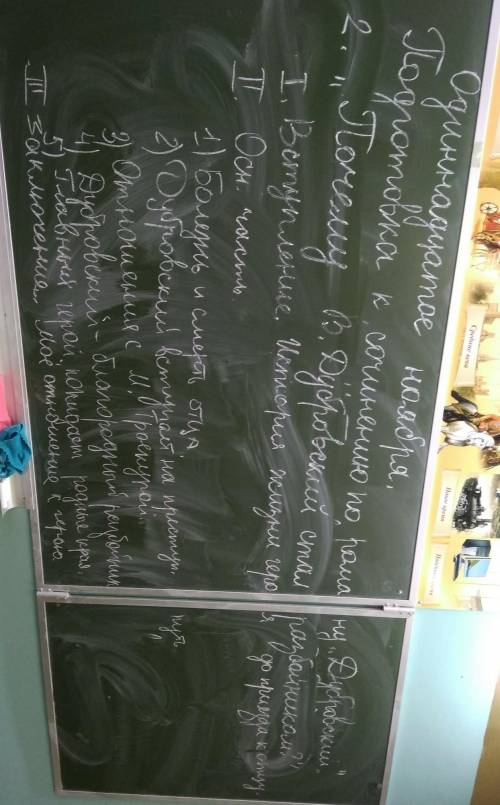 Одиннадцатое ноября.
Подготовка к сочинению по роману „Дубровский".
2. „Почему В. Дубровский стал разбойником?"
I. Вступление. История жизни героя до приезда к отцу
II. Осн. часть.
1) Болезнь и смерть отца
2) Дубровский вступает на преступ. путь
3) Отношения с М. Троекуровой.
4) Дубровский - благородный разбойник
5) Главный герой покидает родные края.
III Заключение. Моё отношение к герою.
Средние века
Новое время